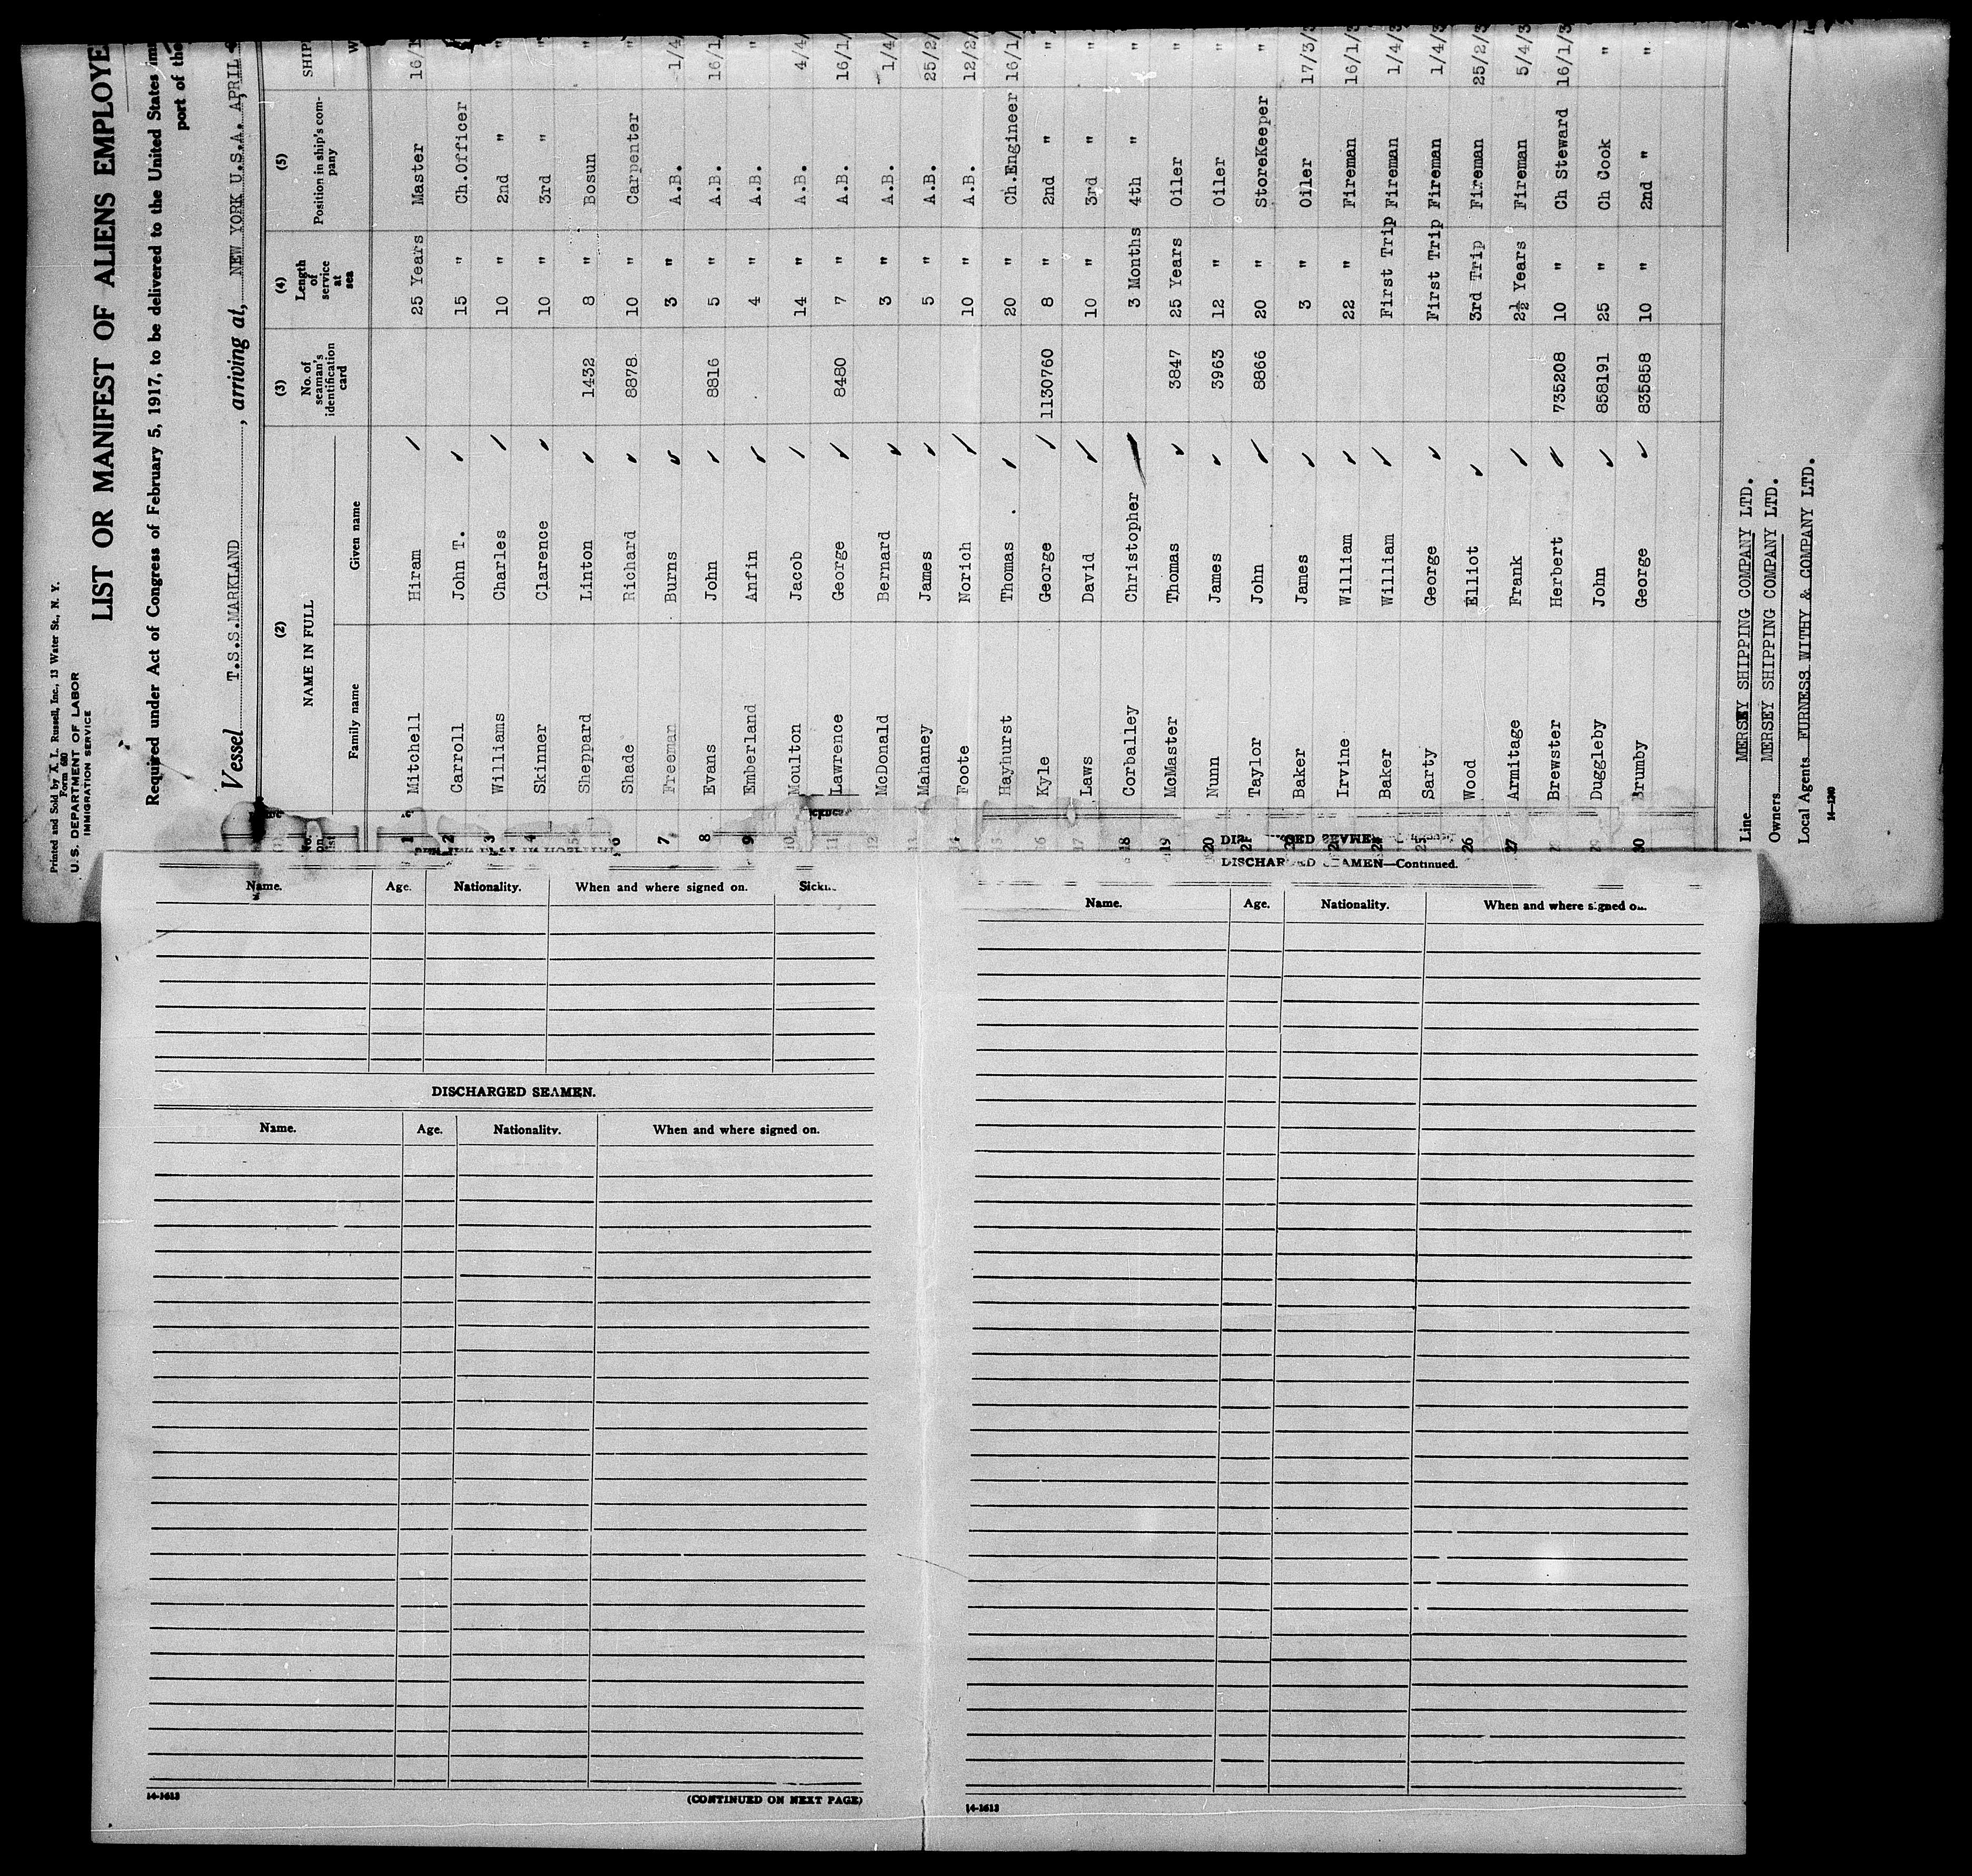 Printed and Sold by A. L. Russell, Inc., 13 Water St., N. Y.
Form 680
U. S. DEPARTMENT OF LABOR
IMMIGRATION SERVICE
LIST OR MANIFEST OF ALIENS EMPLOYE
Required under Act of Congress of February 5, 1917, to be delivered to the United States
port of the
Vessel T.S.S.MARKLAND, arriving at, NEW YORK U.S.A. APRIL
(2) (3) (4) (5)
NAME IN FULL No. of seaman's identification card Length of service at sea Position in ship's company SHIP
Family name Given name
1 Mitchell Hiram 25 Years Master 16/1
2 Carroll John T. 15 " Ch.Officer
3 Williams Charles 10 " 2nd " "
4 Skinner Clarence 10 " 3rd " "
Sheppard Linton 1432 8 " Bosun "
6 Shade Richard 8878 10 " Carpenter "
7 Freeman Burns 3 " A.B. 1/4/
8 Evans John 8816 5 " A.B. 16/1/
9 Emberland Anfin 4 " A.B. "
10 Moulton Jacob 14 " A.B. 4/4/
11 Lawrence George 8480 7 " A.B. 16/1/
12 McDonald Bernard 3 " A.B. 1/4/
13 Mahaney James 5 " A.B. 25/2/
Foote Norich 10 " A.B. 12/2/
Hayhurst Thomas 20 " Ch.Engineer 16/1/
16 Kyle George 1130760 8 " 2nd " "
17 Laws David 10 " 3rd " "
18 Corballey Christopher 3 Months 4th " "
19 McMaster Thomas 3847 25 Years Oiler "
20 Nunn James 3963 12 " Oiler "
21 Taylor John 8866 20 " StoreKeeper "
Baker James 3 " Oiler 17/3/3
Irvine William 22 " Fireman 16/1/3
24 Baker William First Trip Fireman 1/4/3
25 Sarty George First Trip Fireman 1/4/3
26 Wood Elliot 3rd Trip Fireman 25/2/3
27 Armitage Frank 2½ Years Fireman 5/4/3
Brewster Herbert 735208 10 " Ch Steward 16/1/3
Duggleby John 858191 25 " Ch Cook "
30 Brumby George 835858 10 " 2nd " "
Line MERSEY SHIPPING COMPANY LTD.
Owners MERSEY SHIPPING COMPANY LTD.
Local Agents FURNESS WITHY & COMPANY LTD.
14-1240
Name. Age. Nationality. When and where signed on.
DISCHARGED SEAMEN.
Name. Age. Nationality. When and where signed on.
14-1613
(CONTINUED ON NEXT PAGE)
DISCHARGED SEAMEN—Continued.
Name. Age. Nationality. When and where signed on.
14-1613